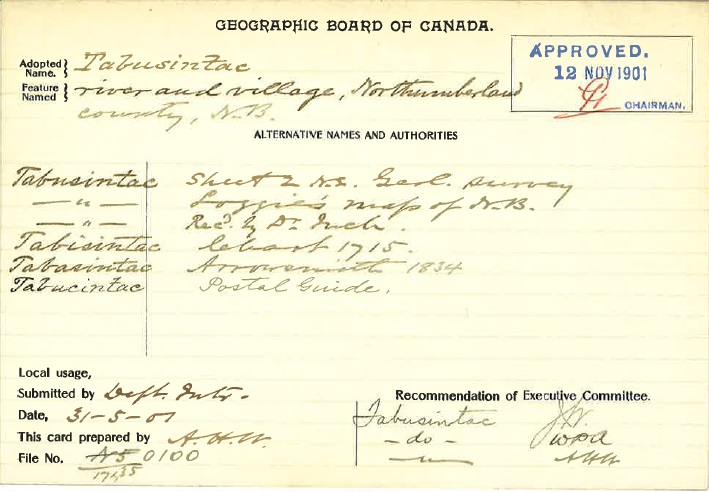 GEOGRAPHIC BOARD OF CANADA.
Adopted Name. } Tabusintac
Feature Named } river and village, Northumberland
county, N.B.
APPROVED.
12 NOV 1901
CHAIRMAN.
ALTERNATIVE NAMES AND AUTHORITIES
Tabusintac Sheet 2 N.E. Geol. Survey
— " — Loggie's map of N.B.
— " — Rec'd. by Dr. Inch.
Tabisintac Chart 1715.
Tabasintac Arrowsmith 1834
Tabucintac Postal Guide.
Local usage,
Submitted by Deft. Intr.
Date, 31-5-01
This card prepared by A.H.W.
File No. N5 0100
Recommendation of Executive Committee.
Tabusintac
- do -
— " —